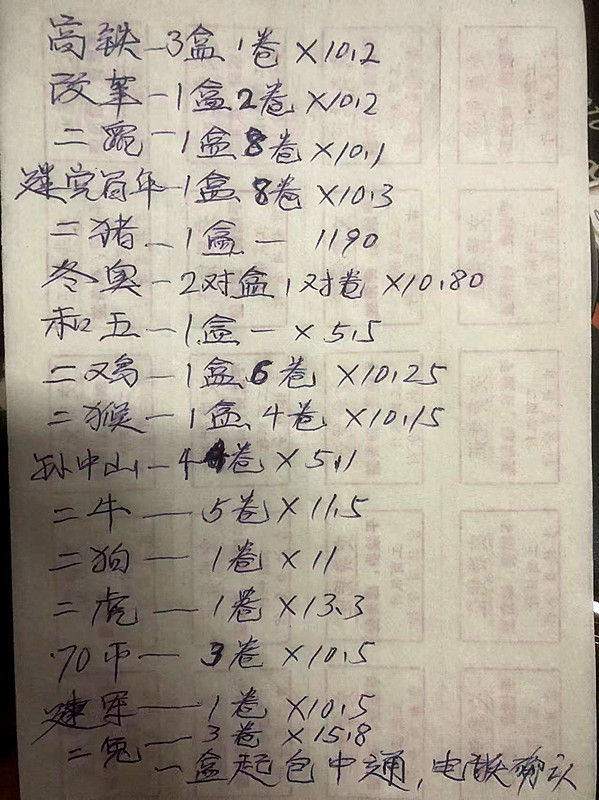 高铁-3盒1卷×10.2
改革-1盒2卷×10.2
二龍-1盒8卷×10.1
建党百年-1盒8卷×10.3
二猪-1盒- 1190
冬奥-2对盒1对卷×10.80
和五-1盒-×5.5
二鸡-1盒6卷×10.25
二猴-1盒4卷×10.15
孙中山-4卷×5.1
二牛-5卷×11.5
二狗-1卷×11
二虎-1卷×13.3
70币-3卷×10.5
建军-1卷×10.5
二兔-3卷×15.8
一盒起包中通,电联确认